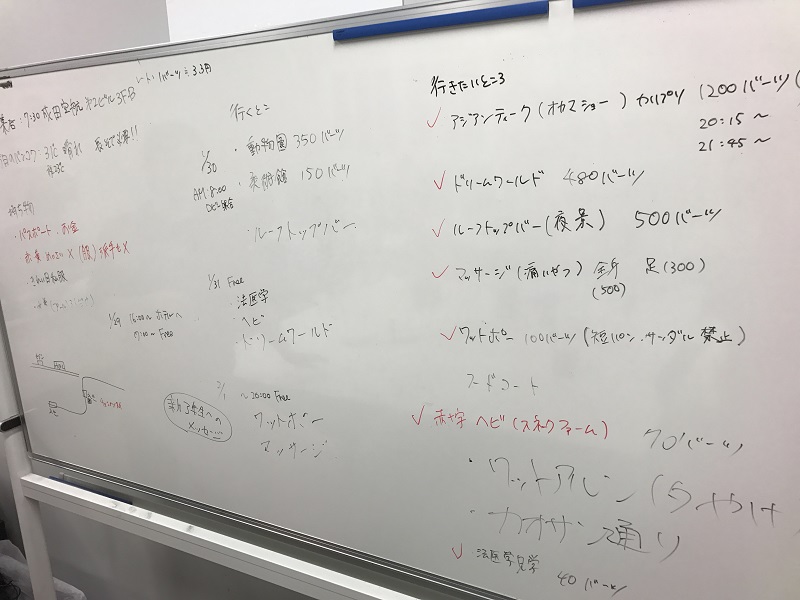 レート 1バーツ≒3.3円
集合:7:30 成田空港 第2ビル3F
晴れ
持ち物
・パスポート お金
きれいな服
1/29 16:00〜 ホテルへ
Free
新入生への
メッセージ
行くとこ
1/30
AM:8:00
ロビー集合
・動物園 350バーツ
・美術館 150バーツ
ルーフトップバー
1/31 Free
・法医学
・ヘビ
・ドリームワールド
2/1 〜20:00 Free
ワットポー
マッサージ
行きたいところ
✓ アジアンティーク(オカマショー) カリプソ 1200バーツ(
20:15〜
21:45〜
✓ ドリームワールド 480バーツ
✓ ルーフトップバー(夜景) 500バーツ
✓ マッサージ(痛いやつ) 全身 足(300)
(500)
✓ ワットポー 100バーツ(短パン・サンダル禁止)
フードコート
✓ 赤十字 ヘビ(スネークファーム) 70バーツ
・ワットアルン(夕やけ
・カオサン通り
✓ 法医学見学 40バーツ